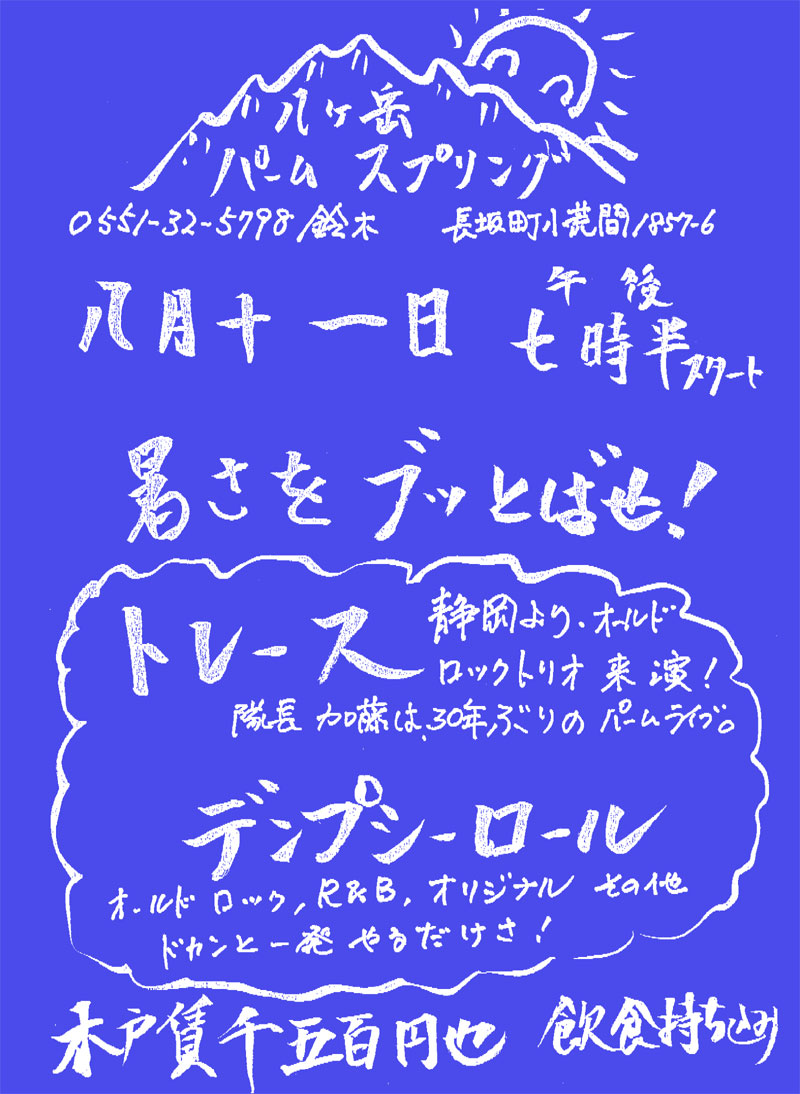 八ヶ岳
パーム スプリング
0551-32-5798 鈴木 長坂町小荒間1857-6
八月十一日 午後七時半スタート
暑さをブッとばせ!
トレース 静岡より、オールド
ロックトリオ 来演!
隊長 加藤は、30年ぶりの パームライブ。
デンプシーロール
オールド ロック, R&B, オリジナル その他
ドカンと一発 やるだけさ!
木戸賃千五百円也 飲食持ち込み